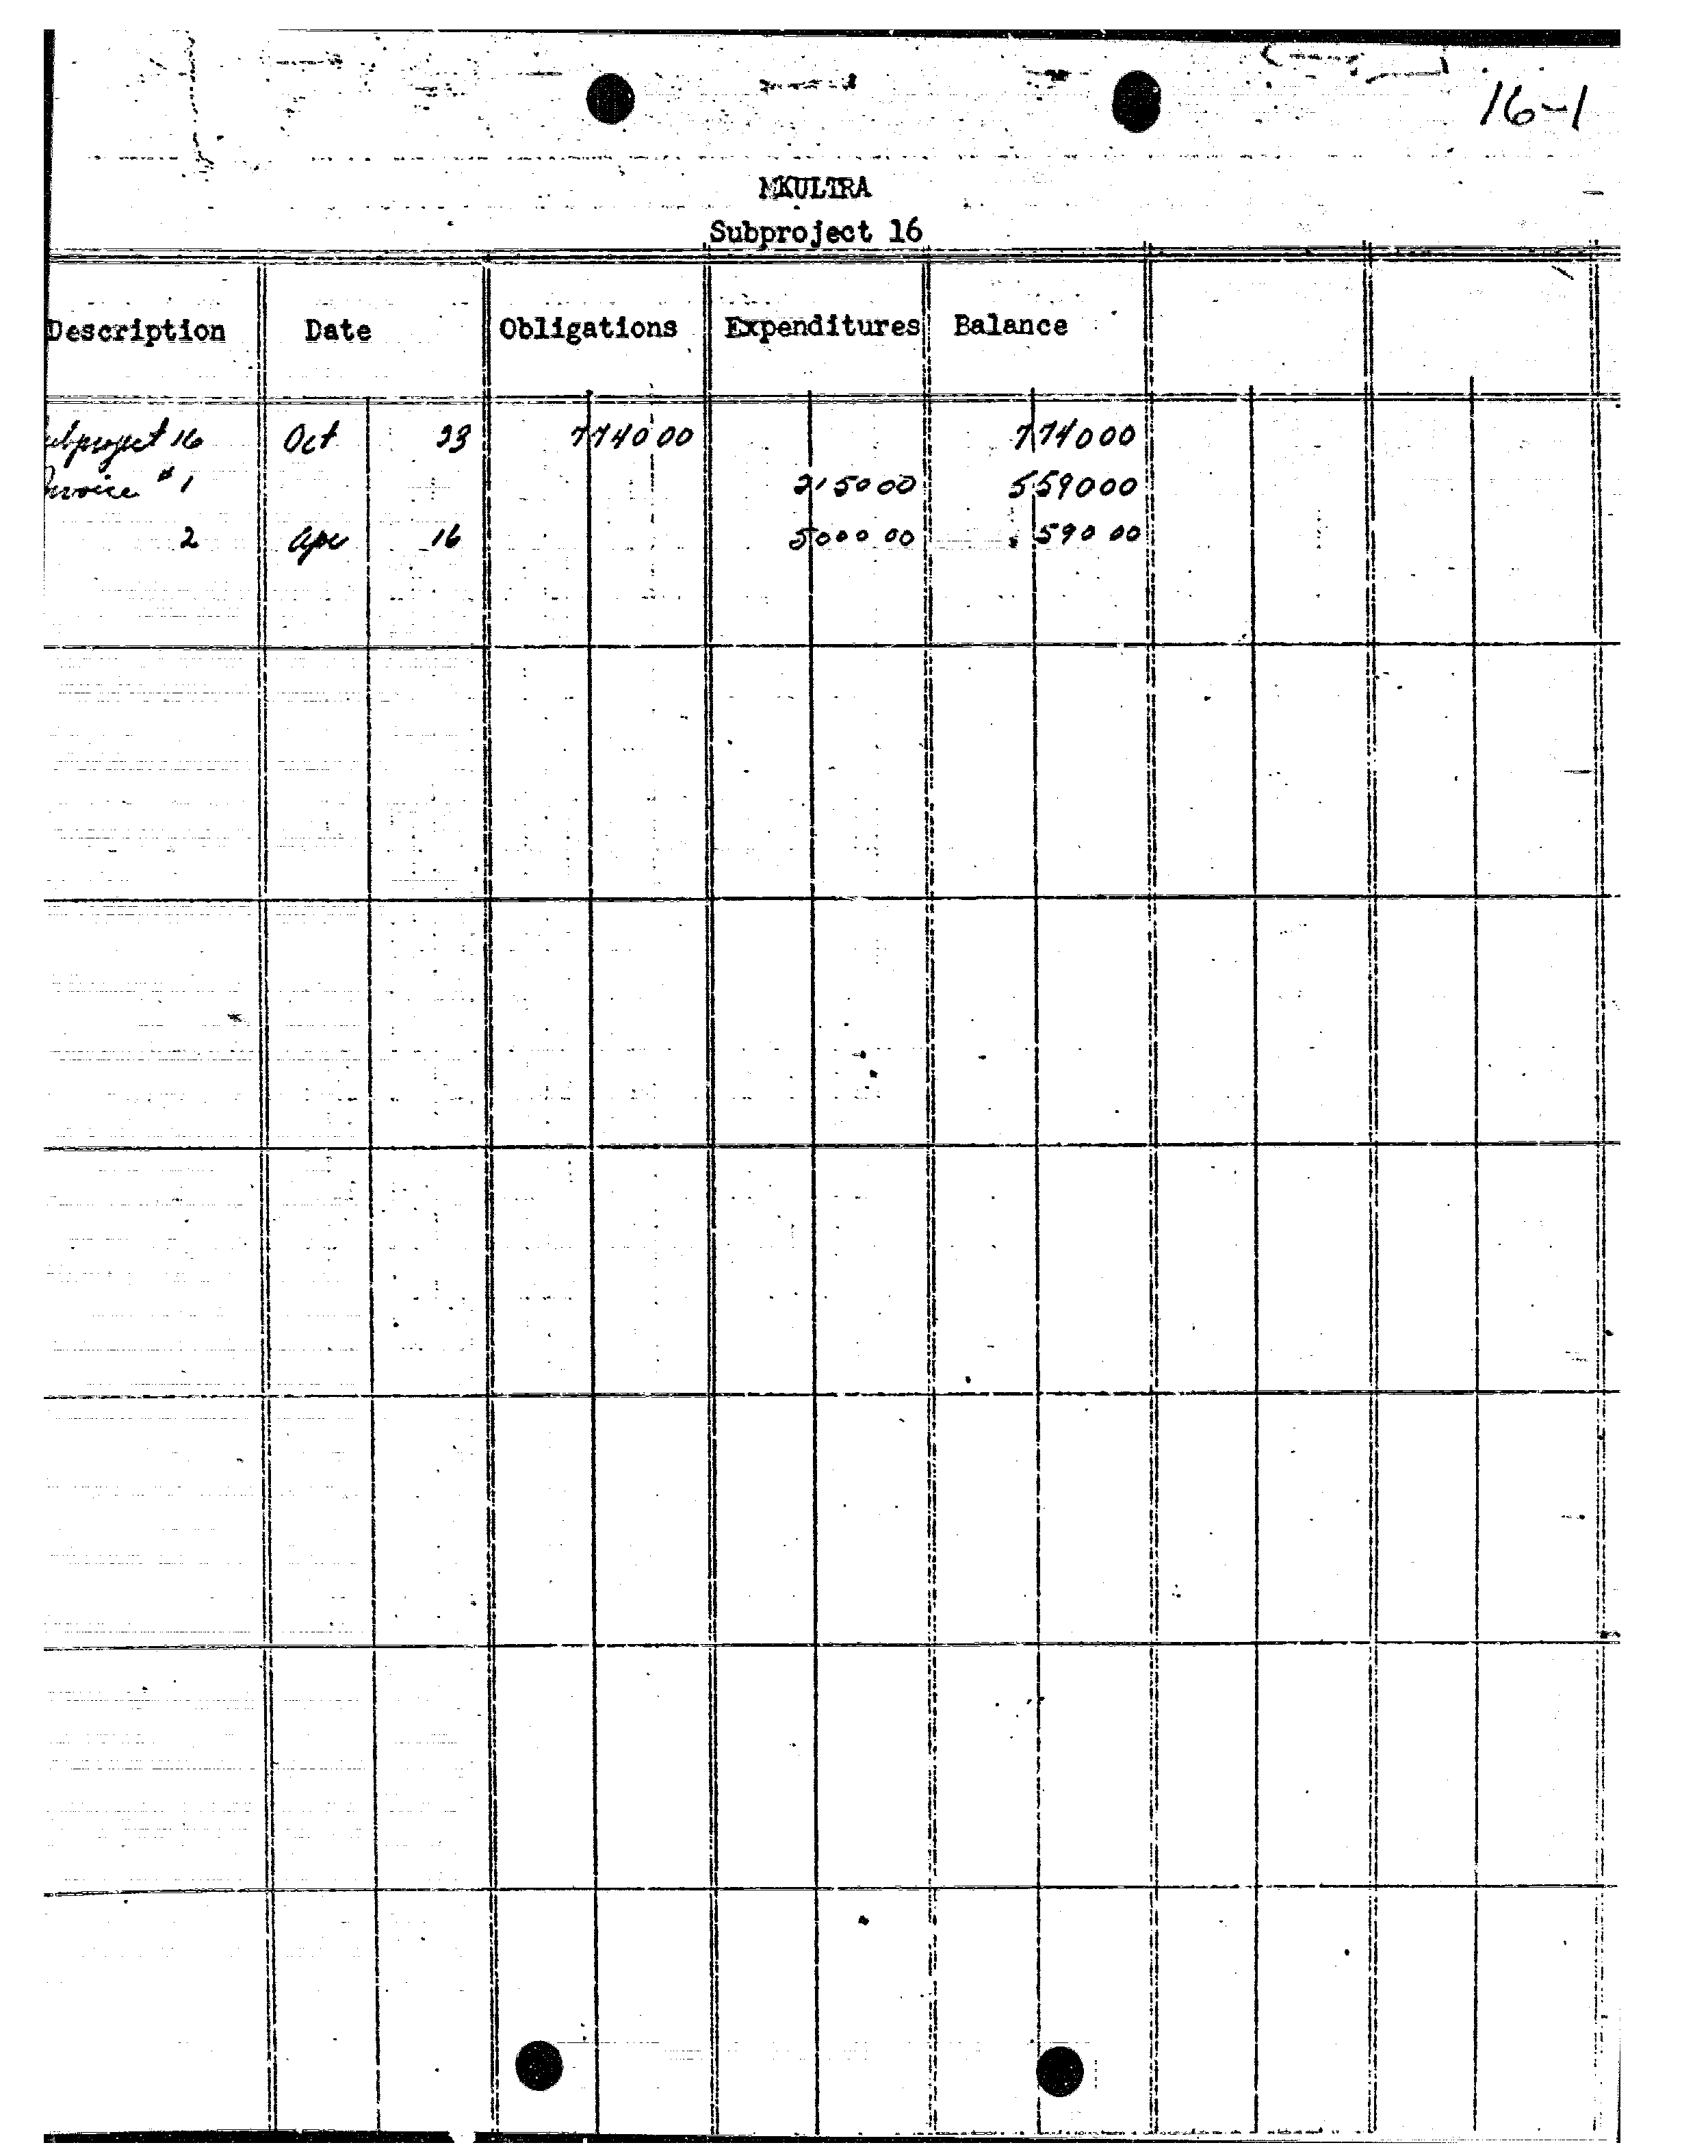 16-1
MKULTRA
Subproject 16
Description Date Obligations Expenditures Balance
ubproject 16 Oct 23 7740 00 7740 00
Invoice #1 2150 00 5590 00
2 Apr 16 5000 00 590 00